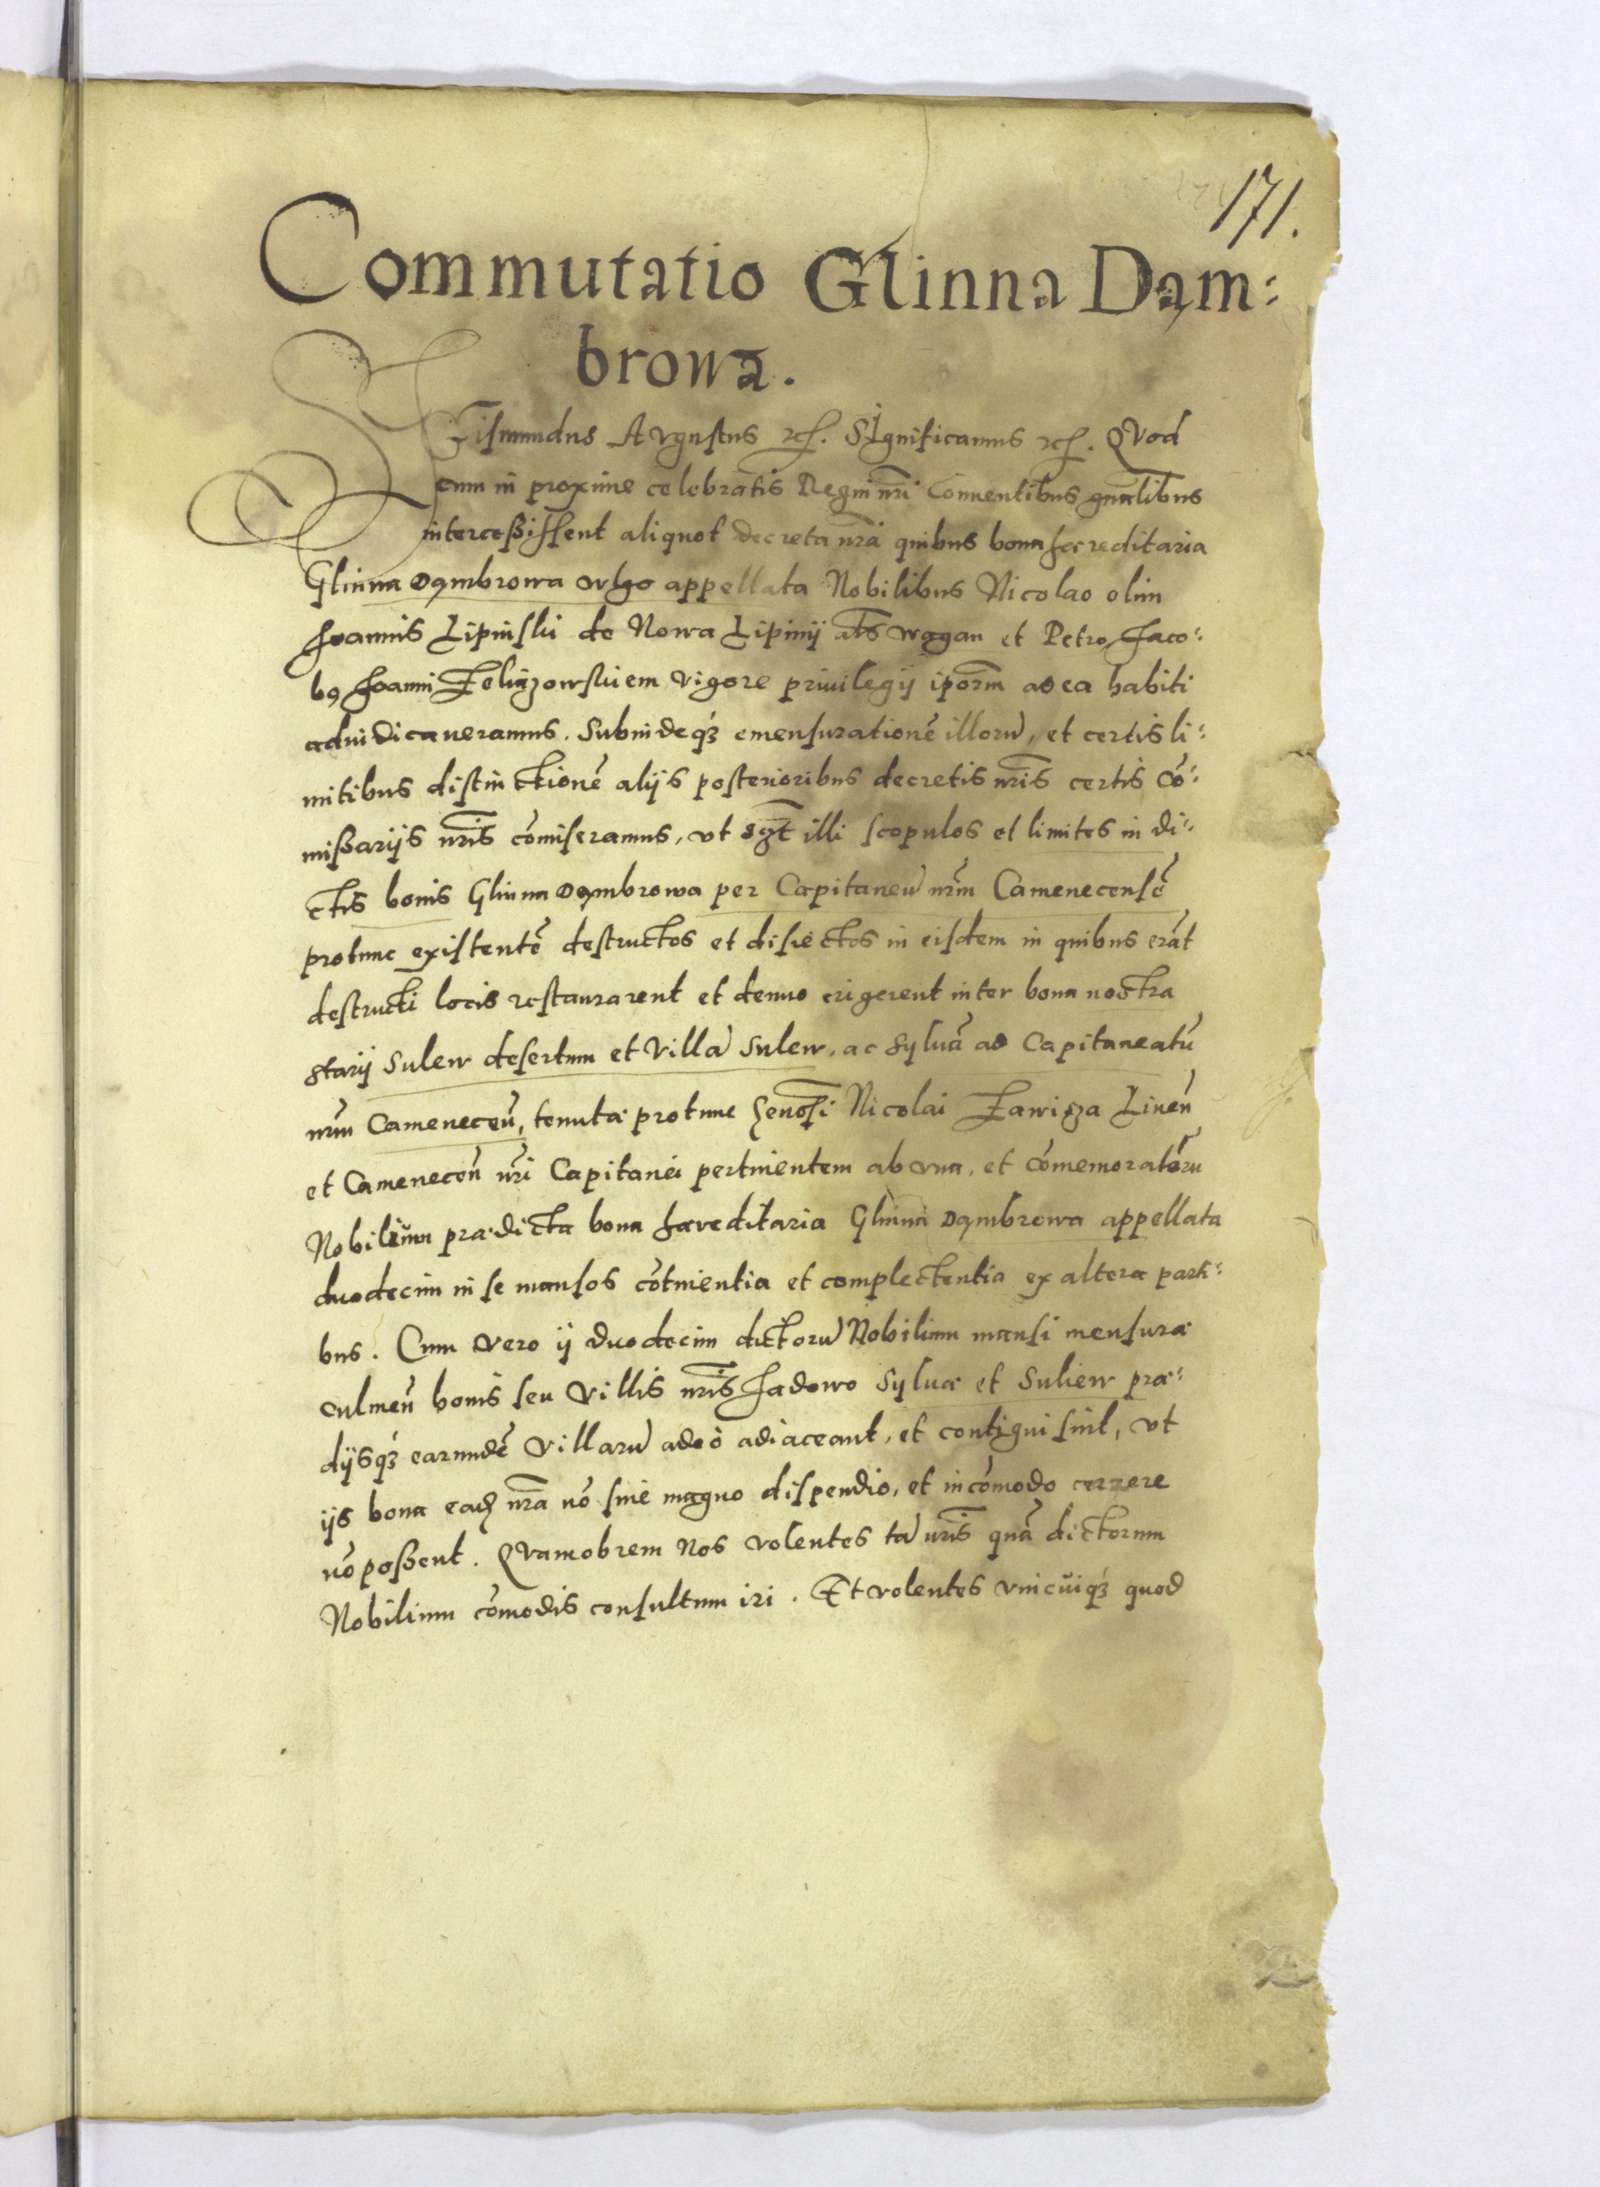 171.
Commutatio Glinna Dam:
browa.
Sigismundus Augustus etc. Significamus etc. Quod
cum in proxime celebratis Regni nri Conuentibus gnalibus
intercessissent aliquot decreta nra quibus bona haereditaria
Glinna Dąmbrowa vulgo appellata Nobilibus Nicolao olim
Joannis Lipinski de Nowa Lipinij als Wągan et Petro Jaco:
bo Joanni vigore priuilegij ipsorm ad ea habiti
adiudicaueramus. Subindeq3 emensurationē illorū, et certis li:
mitibus distinctionē alijs posterioribus decretis nris certis cō:
missarijs nris cōmiseramus, vt illi scopulos et limites in di:
ctis bonis Glinna Dąmbrowa per Capitaneū nrm Camenecensē
protunc existentē destructos et disiectos in eisdem in quibus erāt
destructi locis restaurarent et denuo erigerent inter bona nostra
starij Sulew desertum et Villā Sulew, ac syluā ad Capitaneatū
nrm Camenecen̄, tenutæ protunc Nicolai Liuen̄
et Camenecen̄ nri Capitanei pertinentem ab vna, et cōmemoratoru
Nobilium prædicta bona hæreditaria Glinna Dąmbrowa appellata
duodecim in se mansos cōtinentia et complectentia ex altera parti:
bus. Cum vero ij duodecim dictorū Nobilium mansi mensuræ
culmen̄ bonis seu Villis nris Jadowo Syluæ et Suliew præ:
dijsq3 earundē Villarū adeò adiaceant, et contigui sint, vt
ijs bona nra nō sine magno dispendio, et incōmodo carere
nō possent. Quamobrem Nos volentes tā nris quā dictorum
Nobilium cōmodis consultum iri. Et volentes vnicuiq3 quod